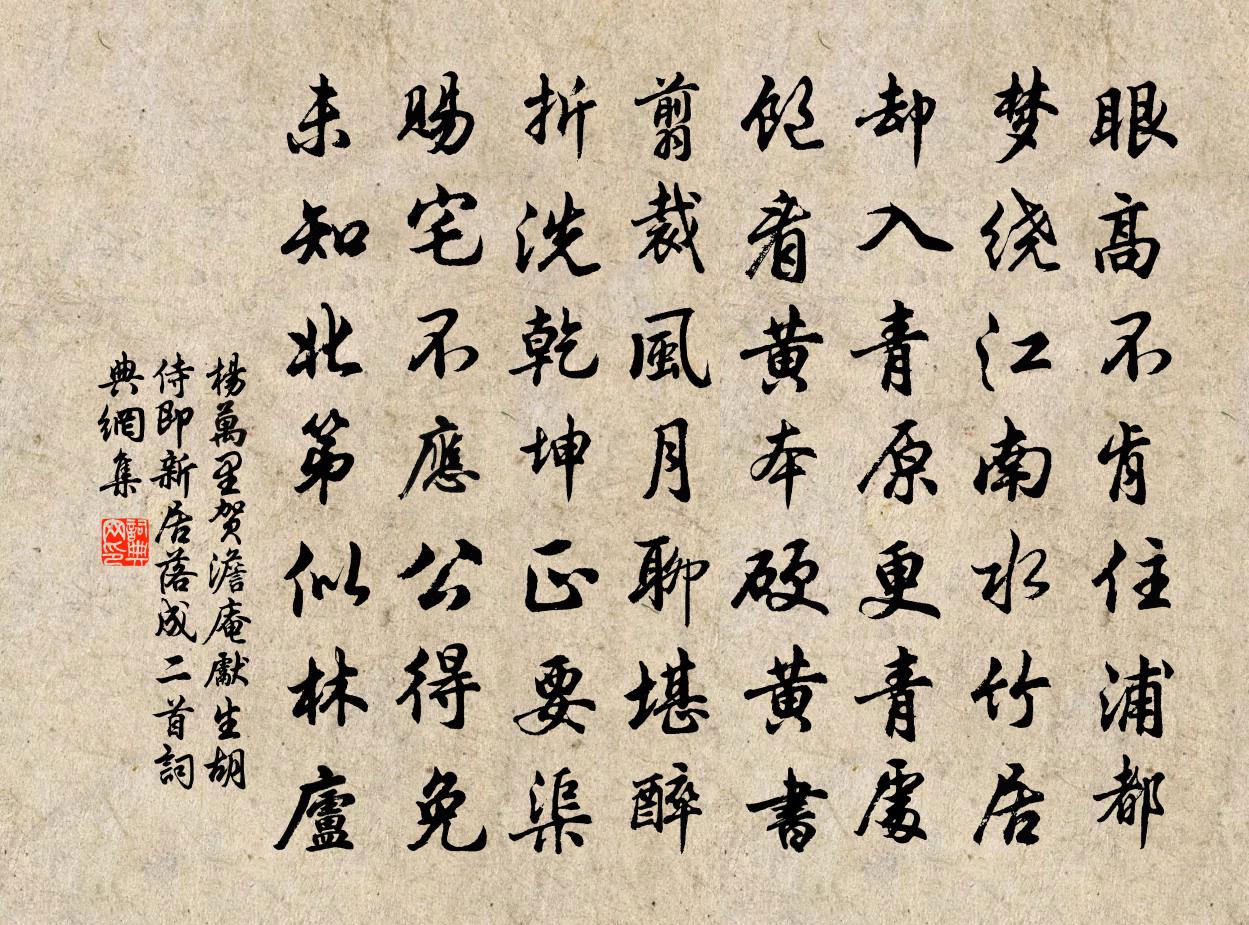 眼高不肯住浦都
梦绕江南水竹居
却入青原更青處
飽看黃本硬黃書
翦裁風月聊堪醉
折洗乾坤正要渠
賜宅不應公得免
未知北第似林廬
楊萬里贺澹庵獻生胡
侍即新居落成二首詞
典網集
詞典
网印